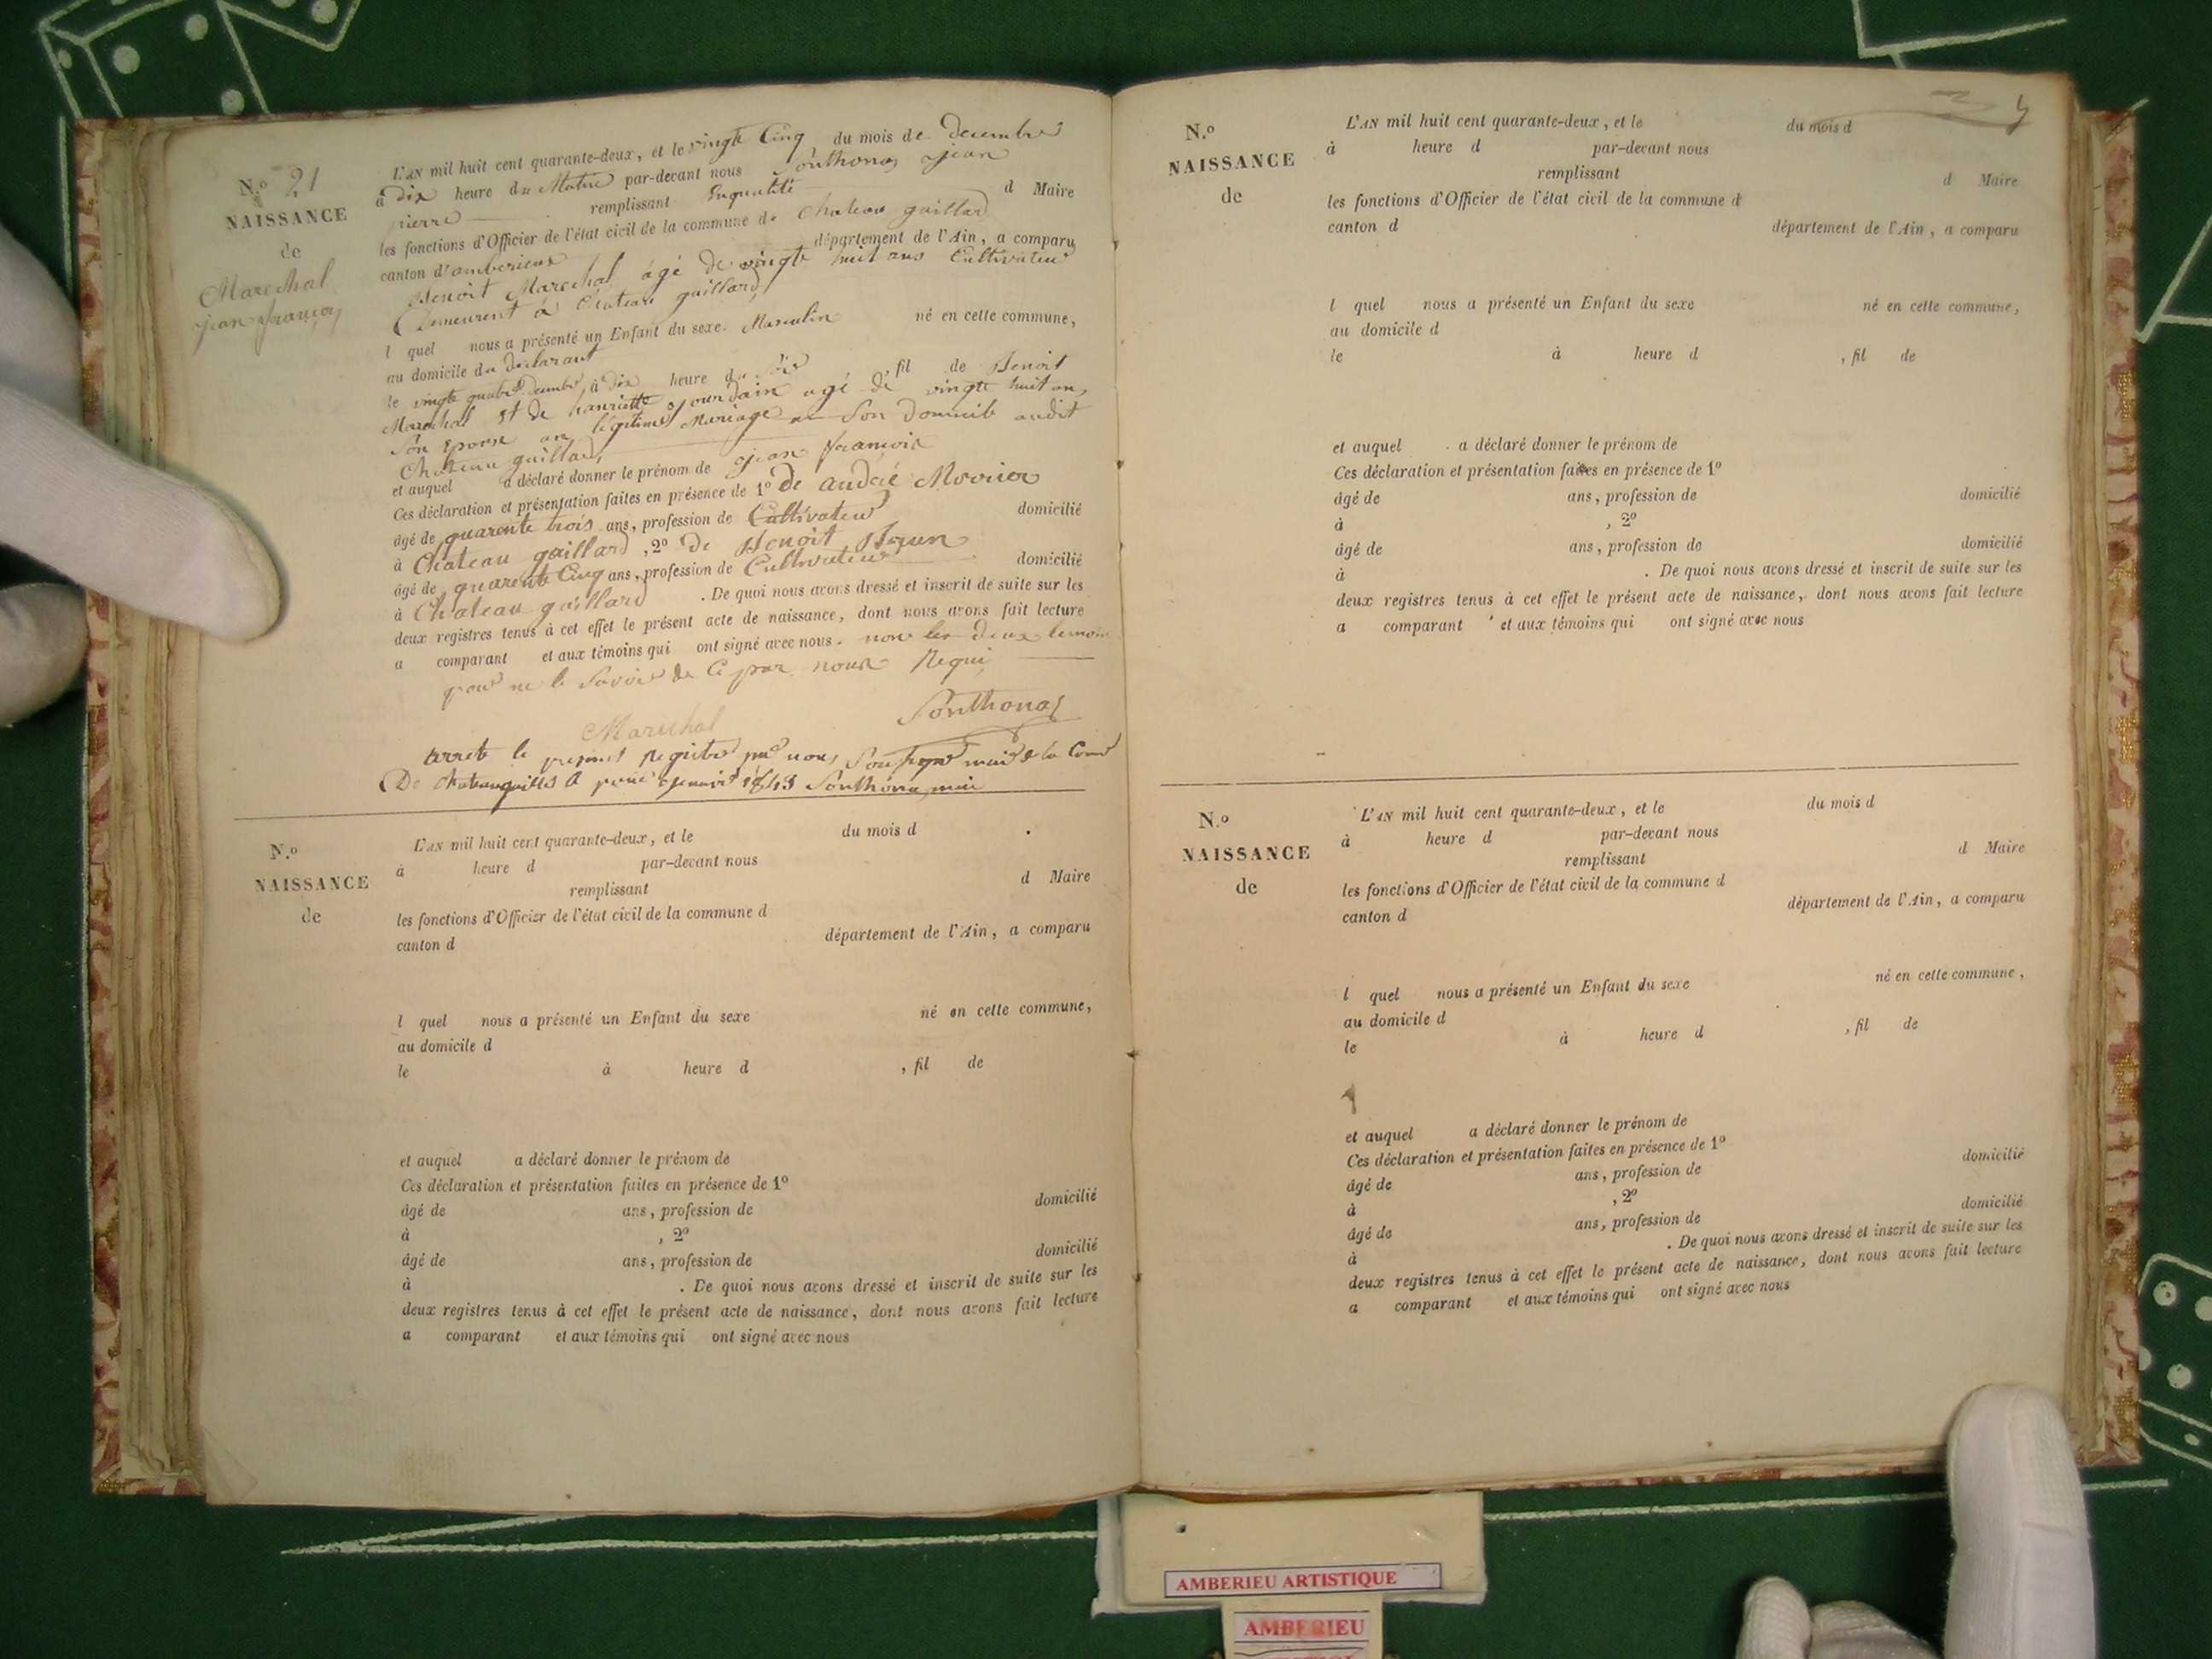 N.o 21
NAISSANCE
de
Marechal
jean françois
L'AN mil huit cent quarante-deux, et le vingte Cinq du mois de decembre
à dix heure du Matin par-devant nous Sonthonas jean
pierre remplissant Enqualité d Maire
les fonctions d'Officier de l'état civil de la commune de Chateau gaillard
canton d'amberieux département de l'Ain, a comparu
Benoit Marechal agé de vingte huit ans Cultivateur
Demeurent à Chateau gaillard
l quel nous a présenté un Enfant du sexe Masculin né en cette commune,
au domicile du declarant
le vingte quatre decembre, à dix heure du soir, fil de Benoit
Marechal et de henriette jourdain agé de vingte huit ans
Son Epouse en légitime Mariage en Son domicile audit
Chateau gaillard,
et auquel a déclaré donner le prénom de jean françois
Ces déclaration et présentation faites en présence de 1o de andré
âgé de quarente trois ans, profession de Cultivateur domicilié
à Chateau gaillard, 2o de Benoit
âgé de quarente Cinq ans, profession de Cultivateur domicilié
à Chateau gaillard. De quoi nous avons dressé et inscrit de suite sur les
deux registres tenus à cet effet le présent acte de naissance, dont nous avons fait lecture
a comparant et aux témoins qui ont signé avec nous. non les deux temoins
pour ne le Savoir de Ce par nous Requi
Marechal
Sonthonas
arreté le present Registre par nous Soussigné maire de la Comm
De Chateaugaillard 1843 Sonthonas maire
N.o
NAISSANCE
de
L'AN mil huit cent quarante-deux, et le du mois d
à heure d par-devant nous
remplissant d Maire
les fonctions d'Officier de l'état civil de la commune d
canton d département de l'Ain, a comparu
l quel nous a présenté un Enfant du sexe né en cette commune,
au domicile d
le à heure d , fil de
et auquel a déclaré donner le prénom de
Ces déclaration et présentation faites en présence de 1o
âgé de ans, profession de domicilié
à , 2o
âgé de ans, profession de domicilié
à . De quoi nous avons dressé et inscrit de suite sur les
deux registres tenus à cet effet le présent acte de naissance, dont nous avons fait lecture
a comparant et aux témoins qui ont signé avec nous
N.o
NAISSANCE
de
L'AN mil huit cent quarante-deux, et le du mois d
à heure d par-devant nous
remplissant d Maire
les fonctions d'Officier de l'état civil de la commune d
canton d département de l'Ain, a comparu
l quel nous a présenté un Enfant du sexe né en cette commune,
au domicile d
le à heure d , fil de
et auquel a déclaré donner le prénom de
Ces déclaration et présentation faites en présence de 1o
âgé de ans, profession de domicilié
à , 2o
âgé de ans, profession de domicilié
à . De quoi nous avons dressé et inscrit de suite sur les
deux registres tenus à cet effet le présent acte de naissance, dont nous avons fait lecture
a comparant et aux témoins qui ont signé avec nous
N.o
NAISSANCE
de
L'AN mil huit cent quarante-deux, et le du mois d
à heure d par-devant nous
remplissant d Maire
les fonctions d'Officier de l'état civil de la commune d
canton d département de l'Ain, a comparu
l quel nous a présenté un Enfant du sexe né en cette commune,
au domicile d
le à heure d , fil de
et auquel a déclaré donner le prénom de
Ces déclaration et présentation faites en présence de 1o
âgé de ans, profession de domicilié
à , 2o
âgé de ans, profession de domicilié
à . De quoi nous avons dressé et inscrit de suite sur les
deux registres tenus à cet effet le présent acte de naissance, dont nous avons fait lecture
a comparant et aux témoins qui ont signé avec nous
AMBERIEU ARTISTIQUE
AMBERIEU